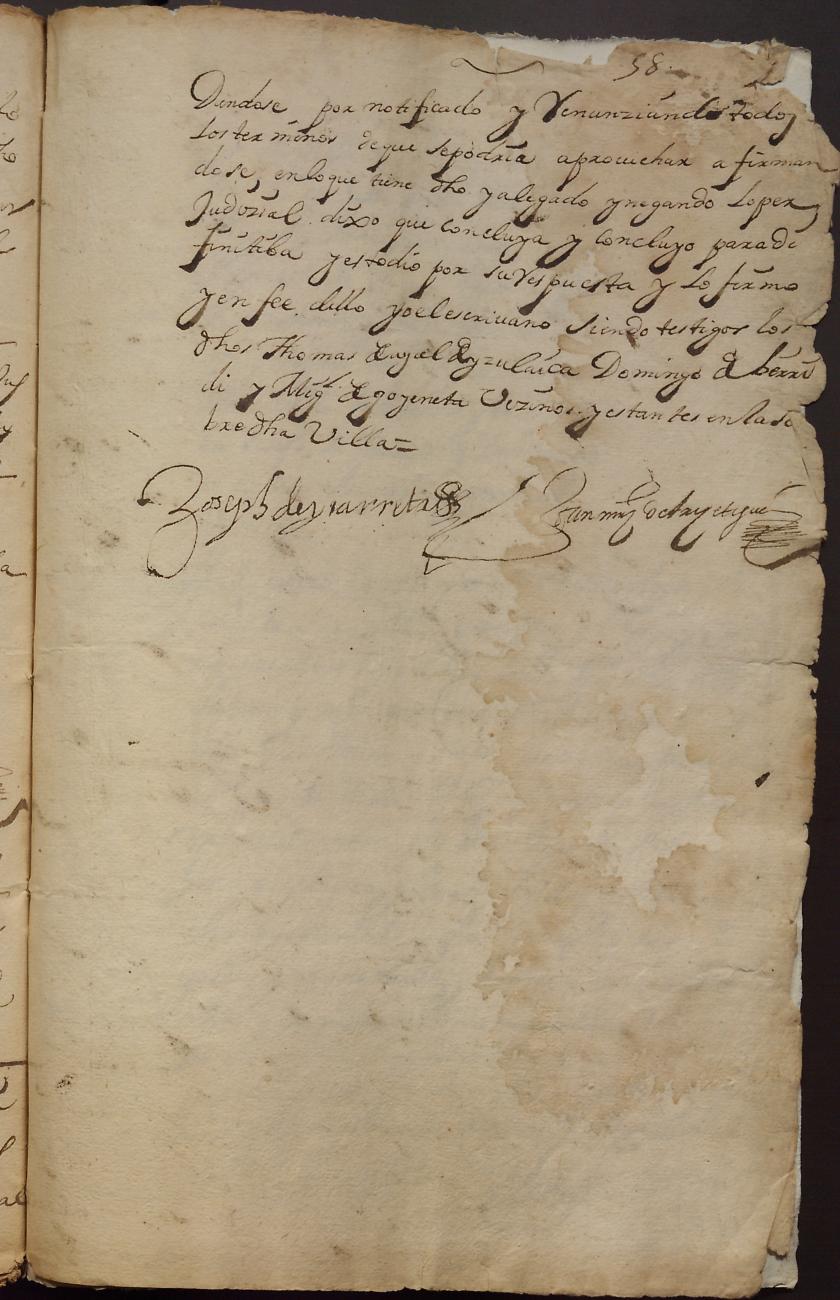 58
Dandose por notificado y Renunziando todos
los terminos de que se podria aprouechar afirman
dose, en lo que tiene dho y alegado y negando lo per
Judizial dixo que concluya y concluyo para de
finitiba y esto dio por su respuesta y lo firmo
y en fee dello yo el escriuano siendo testigos los
dhos Thomas de Domingo de berri
di y Migl de goyeneta Vezinos y estantes en la so
bredha Villa=
Joseph de yriarrita